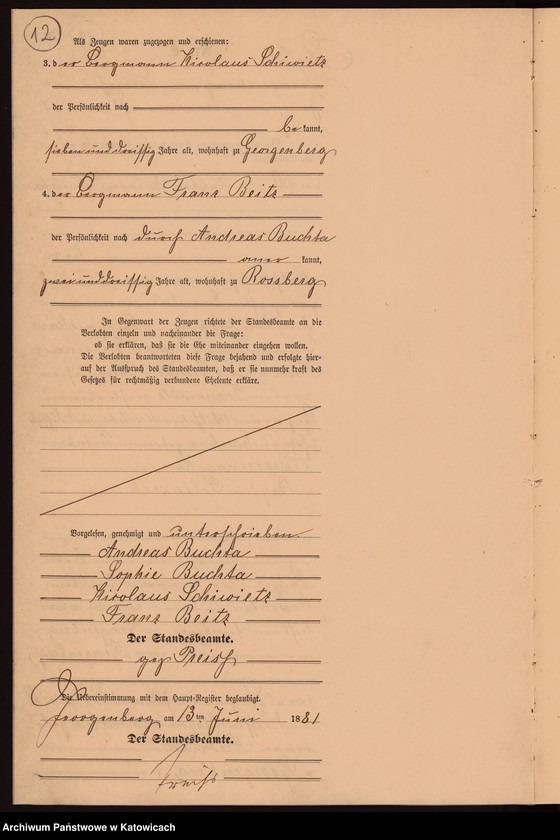 12
Als Zeugen waren zugezogen und erschienen:
3. der Bergmann Nicolaus Schiwietz
der Persönlichkeit nach
be kannt,
sieben und dreissig Jahre alt, wohnhaft zu Georgenberg
4. der Bergmann Franz Beitz
der Persönlichkeit nach durch Andreas Buchta
aner kannt,
zwei und dreissig Jahre alt, wohnhaft zu Rossberg
In Gegenwart der Zeugen richtete der Standesbeamte an die
Verlobten einzeln und nacheinander die Frage:
ob sie erklären, daß sie die Ehe miteinander eingehen wollen.
Die Verlobten beantworteten diese Frage bejahend und erfolgte hier-
auf der Ausspruch des Standesbeamten, daß er sie nunmehr kraft des
Gesetzes für rechtmäßig verbundene Eheleute erkläre.
Vorgelesen, genehmigt und unterschrieben
Andreas Buchta
Sophie Buchta
Nicolaus Schiwietz
Franz Beitz
Der Standesbeamte.
gez Preiß
Die Uebereinstimmung mit dem Haupt-Register beglaubigt.
Georgenberg am 13 ten Juni 1881
Der Standesbeamte.
Preiß
Archiwum Państwowe w Katowicach